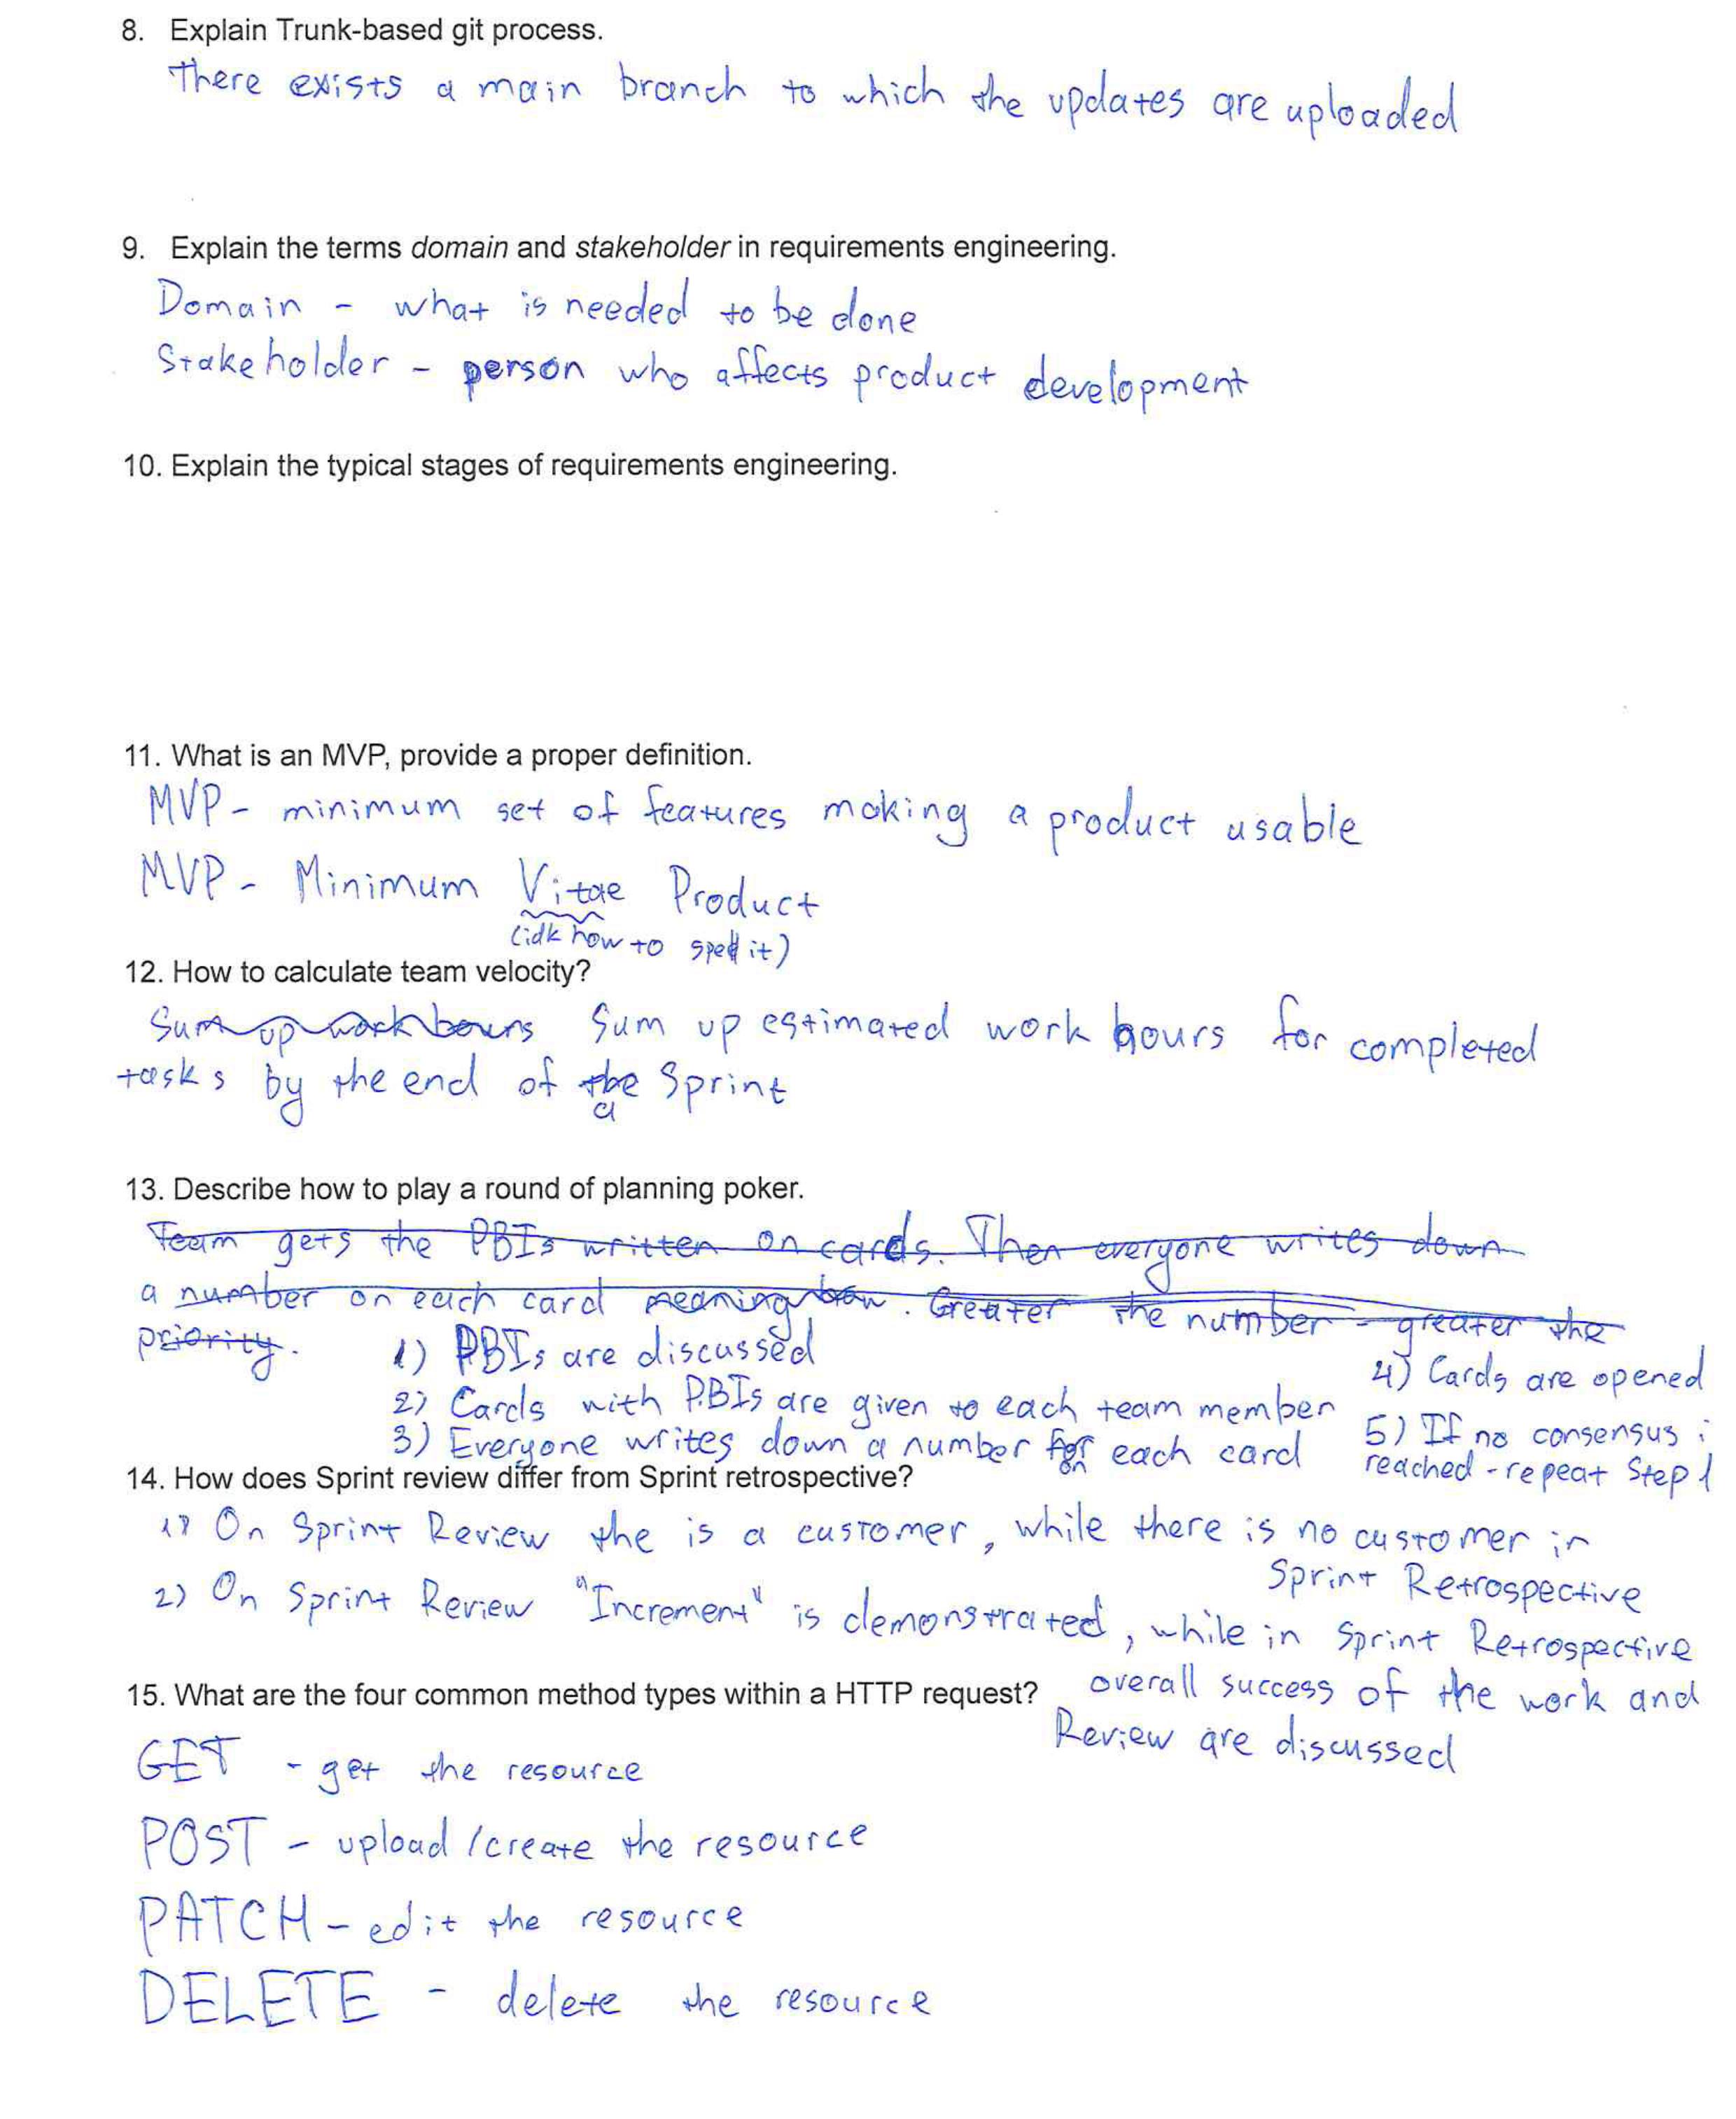 8. Explain Trunk-based git process.
There exists a main branch to which the updates are uploaded
9. Explain the terms domain and stakeholder in requirements engineering.
Domain - what is needed to be done
Stakeholder - person who affects product development
10. Explain the typical stages of requirements engineering.
11. What is an MVP, provide a proper definition.
MVP - minimum set of features making a product usable
MVP - Minimum Vitae Product
(idk how to spell it)
12. How to calculate team velocity?
Sum up work hours Sum up estimated work hours for completed
tasks by the end of the Sprint
a
13. Describe how to play a round of planning poker.
Team gets the PBIs written on cards. Then everyone writes down
a number on each card meaning how. Greater the number - greater the
priority.
1) PBIs are discussed
2) Cards with PBIs are given to each team member
3) Everyone writes down a number for each card
on
4) Cards are opened
5) If no consensus i
reached - repeat Step 1
14. How does Sprint review differ from Sprint retrospective?
1) On Sprint Review the is a customer, while there is no customer in
Sprint Retrospective
2) On Sprint Review "Increment" is demonstrated, while in Sprint Retrospective
overall success of the work and
Review are discussed
15. What are the four common method types within a HTTP request?
GET - get the resource
POST - upload/create the resource
PATCH - edit the resource
DELETE - delete the resource